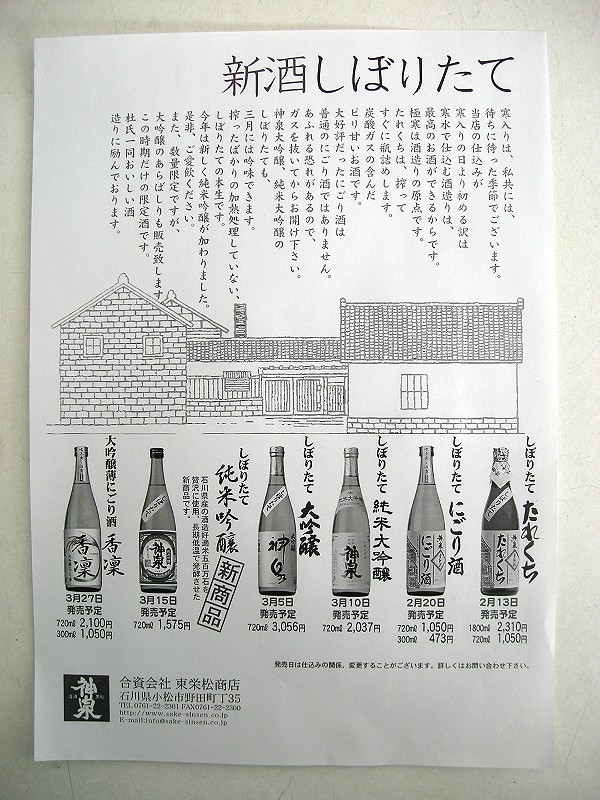 新酒しぼりたて
寒入りは、私共には、
待ちに待った季節でございます。
当店の仕込みが
寒入りの日より初める訳は
寒水で仕込む酒造りは、
最高のお酒ができるからです。
極寒は酒造りの原点です。
たれくちは、搾って
すぐに瓶詰めします。
炭酸ガスの含んだ
ピリ甘いお酒です。
大好評だったにごり酒は
普通のにごり酒ではありません。
あふれる恐れがあるので、
ガスを抜いてからお開け下さい。
神泉大吟醸、純米大吟醸の
しぼりたても
三月には吟味できます。
搾ったばかりの加熱処理していない、
しぼりたての本生です。
今年は新しく純米吟醸が加わりました。
是非、ご愛飲ください。
また、数量限定ですが、
大吟醸のあらばしりも販売致します。
この時期だけの限定酒です。
杜氏一同おいしい酒
造りに励んでおります。
しぼりたて たれくち
2月13日
発売予定
1800㎖ 2,310円
720㎖ 1,050円
しぼりたて にごり酒
2月20日
発売予定
720㎖ 1,050円
300㎖ 473円
しぼりたて 純米大吟醸
3月10日
発売予定
720㎖ 2,037円
しぼりたて 大吟醸
3月5日
発売予定
720㎖ 3,056円
しぼりたて 純米吟醸
新商品
石川県産の酒造好適米五百万石を
贅沢に使用。長期低温で発酵させた
新商品です。
3月15日
発売予定
720㎖ 1,575円
大吟醸薄にごり酒 香凜
3月27日
発売予定
720㎖ 2,100円
300㎖ 1,050円
たれくち
にごり酒
神泉
神泉
神泉
香凜
発売日は仕込みの関係、変更することがございます。詳しくはお問い合わせ下さい。
神泉
合資会社 東栄松商店
石川県小松市野田町丁35
TEL 0761-22-2301 FAX0761-22-2300
http://www.sake-sinsen.co.jp
E-mail:info@sake-sinsen.co.jp